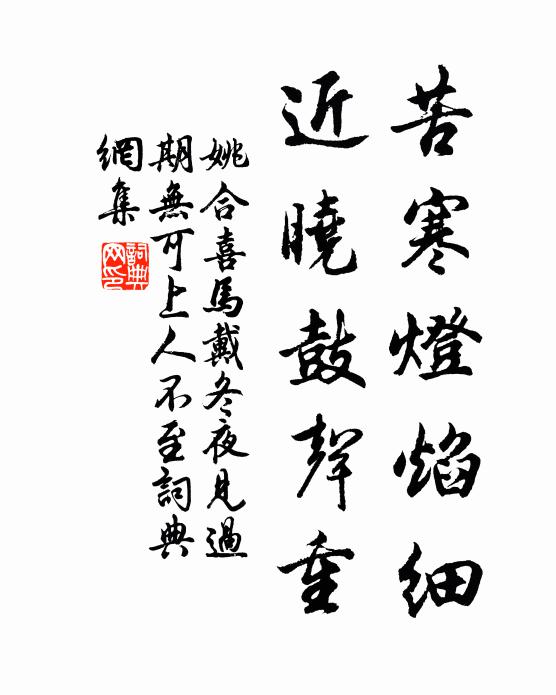 苦寒燈焰細
近曉鼓聲重
姚合喜馬戴冬夜見過
期無可上人不至詞典
網集
詞典網印